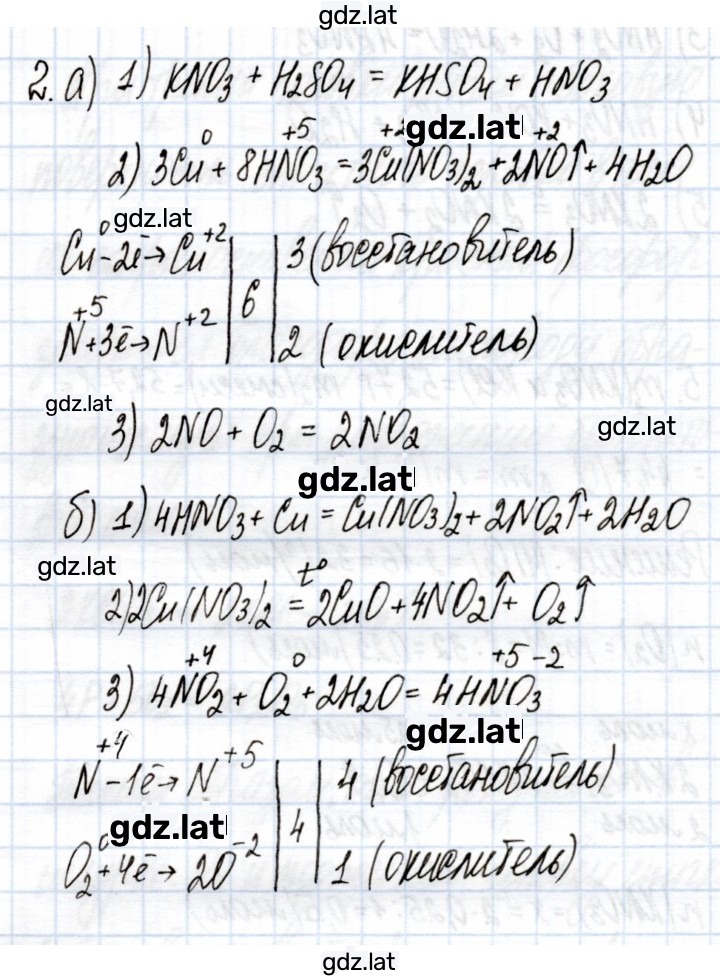 gdz.lat
2. а) 1) KNO₃ + H₂SO₄ = KHSO₄ + HNO₃
0 +5 +2 gdz.lat +2
2) 3Cu + 8HNO₃ = 3Cu(NO₃)₂ + 2NO↑ + 4H₂O
gdz.lat
Cu⁰ - 2ē → Cu⁺² | | 3 (восстановитель)
6
N⁺⁵ + 3ē → N⁺² | | 2 (окислитель)
gdz.lat
3) 2NO + O₂ = 2NO₂ gdz.lat
gdz.lat
б) 1) 4HNO₃ + Cu = Cu(NO₃)₂ + 2NO₂↑ + 2H₂O
gdz.lat
t°
2) 2Cu(NO₃)₂ = 2CuO + 4NO₂↑ + O₂↑
+4 0 +5 -2
3) 4NO₂ + O₂ + 2H₂O = 4HNO₃
gdz.lat
N⁺⁴ - 1ē → N⁺⁵ | | 4 (восстановитель)
gdz.lat 4
O₂⁰ + 4ē → 2O⁻² | | 1 (окислитель)
gdz.lat